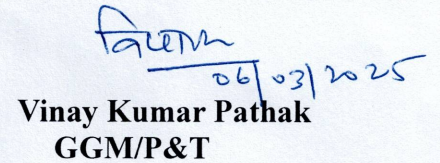 06/03/2025
Vinay Kumar Pathak
GGM/P&T